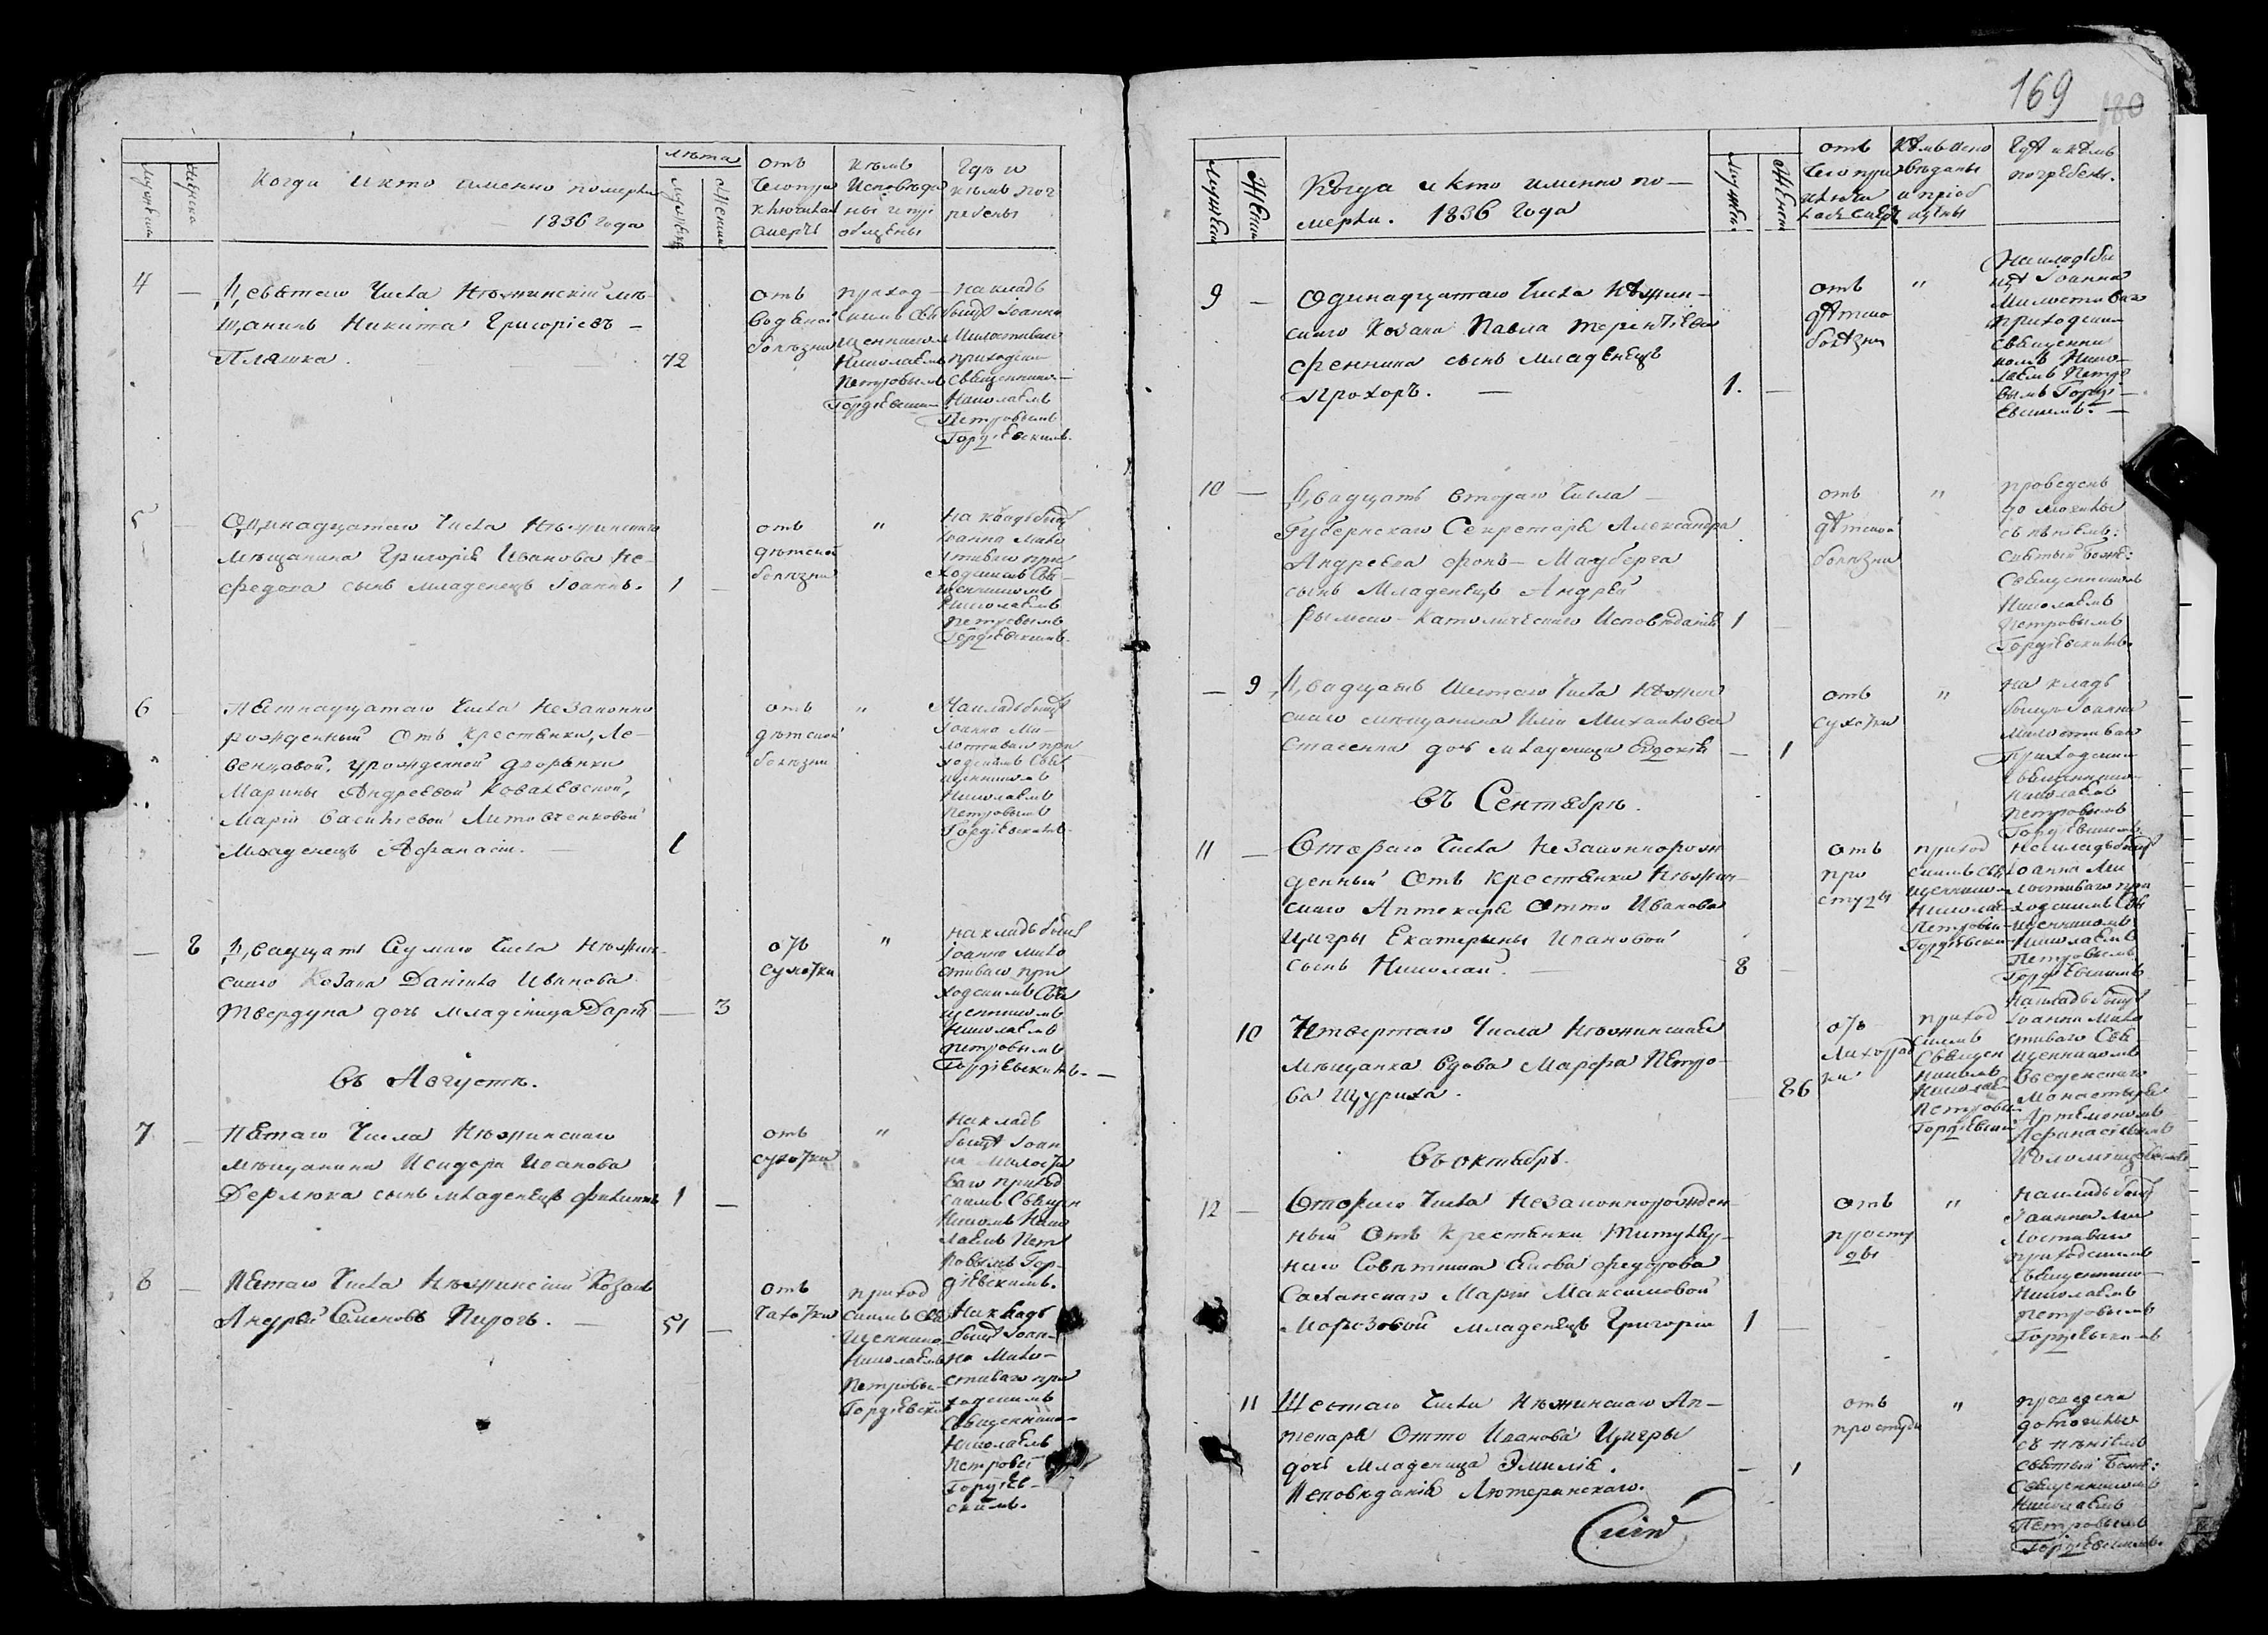 169
180
Когда и кто именно померли
1836 года
лѣта
отъ
чего при
ключилась
смерть
кѣмъ
исповѣда
ны и прі
общены
гдѣ и
кѣмъ пог
ребены
4 —
Девятаго числа Нѣжинскій мѣ-
щанинъ Никита Григоріевъ —
Пляшка. 72
отъ
водяной
болѣзни
приход-
скимъ свя
щенником
Николаемъ
Петровымъ
Гордѣевским
на кладъ
бищѣ Іоанна
Милостиваго
приходским
священнико-
Николаемъ
Петровымъ
Гордѣевскимъ.
5 —
Одинадцатаго числа Нѣжинскаго
мѣщанина Григорія Иванова Не-
федова сынъ младенецъ Іоаннъ. 1 —
отъ
дѣтской
болѣзни
"
на кладьбищѣ
Іоанна Мило
стиваго при
ходскимъ свя-
щенникомъ
Николаемъ
Петровымъ
Гордѣевскимъ.
6 —
Пятнадцатаго числа незаконно
рожденный отъ крестянки, Ле-
венцовой, урожденной дворянки
Марины Андреевой Ковалевской,
Маріи Василіевой Литовченковой
младенецъ Афанасій. — 1
отъ
дѣтской
болѣзни
"
на кладьбищѣ
Іоанна Ми-
лостиваго при
ходскимъ свя
щенникомъ
Николаемъ
Петровымъ
Гордѣевскимъ.
— 8
Двадцать седмаго числа Нѣжин-
скаго козака Даніила Иванова
Твердуна дочь младеница Дарія — 3
отъ
сухотки
"
на кладьбищѣ
Іоанна Мило
стиваго при
ходскимъ свя
щенникомъ
Николаемъ
Петровымъ
Гордѣевскимъ. —
въ Августѣ.
7 —
Пятаго числа Нѣжинскаго
мѣщанина Исидора Иванова
Дерлюка сынъ младенецъ Филиппъ 1 —
отъ
сухотки
"
на кладъ
бищѣ Іоан
на Милости
ваго приход
скимъ священ
никомъ Нико
лаемъ Пет
ровымъ Гор-
дѣевскимъ.
8 —
Пятаго числа Нѣжинскій козакъ
Андрей Семеновъ Пирогъ. — 51 —
отъ
чахотки
приход
скимъ свя
щеннико-
Николаемъ
Петровы-
Гордѣевски
на кладъ
бищѣ Іоан-
на Мило-
стиваго при
ходскимъ
священнико-
Николаемъ
Петровы
Гордѣев-
скимъ.
Когда и кто именно по-
мерли. 1836 года
отъ
чего при
ключи
лась смерть
кѣмъ испо
вѣданы
и пріоб
щены
гдѣ и кѣмъ
погребены.
9 —
Одинадцатаго числа Нѣжин-
скаго козака Павла Терентіева
Фенника сынъ младенецъ
Прохоръ. — 1. —
отъ
дѣтской
болѣзни
"
на кладьби
щѣ Іоанна
Милостиваго
приходским
священни
комъ Нико-
лаемъ Петро
вымъ Гордѣ-
евскимъ. —
10 —
Двадцать втораго числа —
Губернскаго Секретаря Александра
Андреева фонъ-Мауберга
сынъ младенецъ Андрей
Римско-Католическаго исповѣданія 1 —
отъ
дѣтской
болѣзни
"
проведенъ
до могилы
съ пѣніемъ:
святый боже:
священникомъ
Николаемъ
Петровымъ
Гордѣевскимъ.
— 9
Двадцать шестаго числа Нѣжин
скаго мѣщанина Иліи Михайлова
Стасенка дочь младеница Евдокія — 1
отъ
сухотки
"
на кладъ
бищѣ Іоанна
Милостиваго
приходским
священнико-
Николаемъ
Петровымъ
Гордѣевскимъ.
въ Сентябрѣ.
11 —
Втораго числа незаконнорож
денный отъ крестянки Нѣжин-
скаго Аптекаря Отто Иванова
Цигры Екатерины Ивановой
сынъ Николай. — 8 —
отъ
про
студы
приход
скимъ свя
щеннико-
Николае-
Петровы-
Гордѣевски-
на кладьбищѣ
Іоанна Ми
лостиваго при
ходскимъ свя
щенникомъ
Николаемъ
Петровымъ
Гордѣевскимъ
10
Четвертаго числа Нѣжинская
мѣщанка вдова Марфа Петро-
ва Щуриха. — 86
отъ
лихорад
ки
приход
скимъ
священ
никомъ
Николае
Петровы
Гордѣевски
на кладьбищѣ
Іоанна Мило
стиваго свя-
щенникомъ
Введенскаго
монастыря
Артемономъ
Афанасіевымъ
въ октябрѣ.
12 —
Втораго числа незаконнорожден
ный отъ крестянки Титуляр-
наго Совѣтника Якова Федорова
Саханскаго Маріи Максимовой
Морозовой младенецъ Григорій 1 —
отъ
просту
ды
"
на кладьбищѣ
Іоанна Ми
лостиваго
приходскимъ
священнико-
Николаемъ
Петровымъ
Гордѣевскимъ
11
Шестаго числа Нѣжинскаго Ап-
текаря Отто Иванова Цигры
дочь младеница Эмилія. — 1
исповѣданія Лютеранскаго.
отъ
простуды
"
проведена
до могилы
съ пѣніемъ
святый Боже:
священникомъ
Николаемъ
Петровымъ
Гордѣевскимъ.